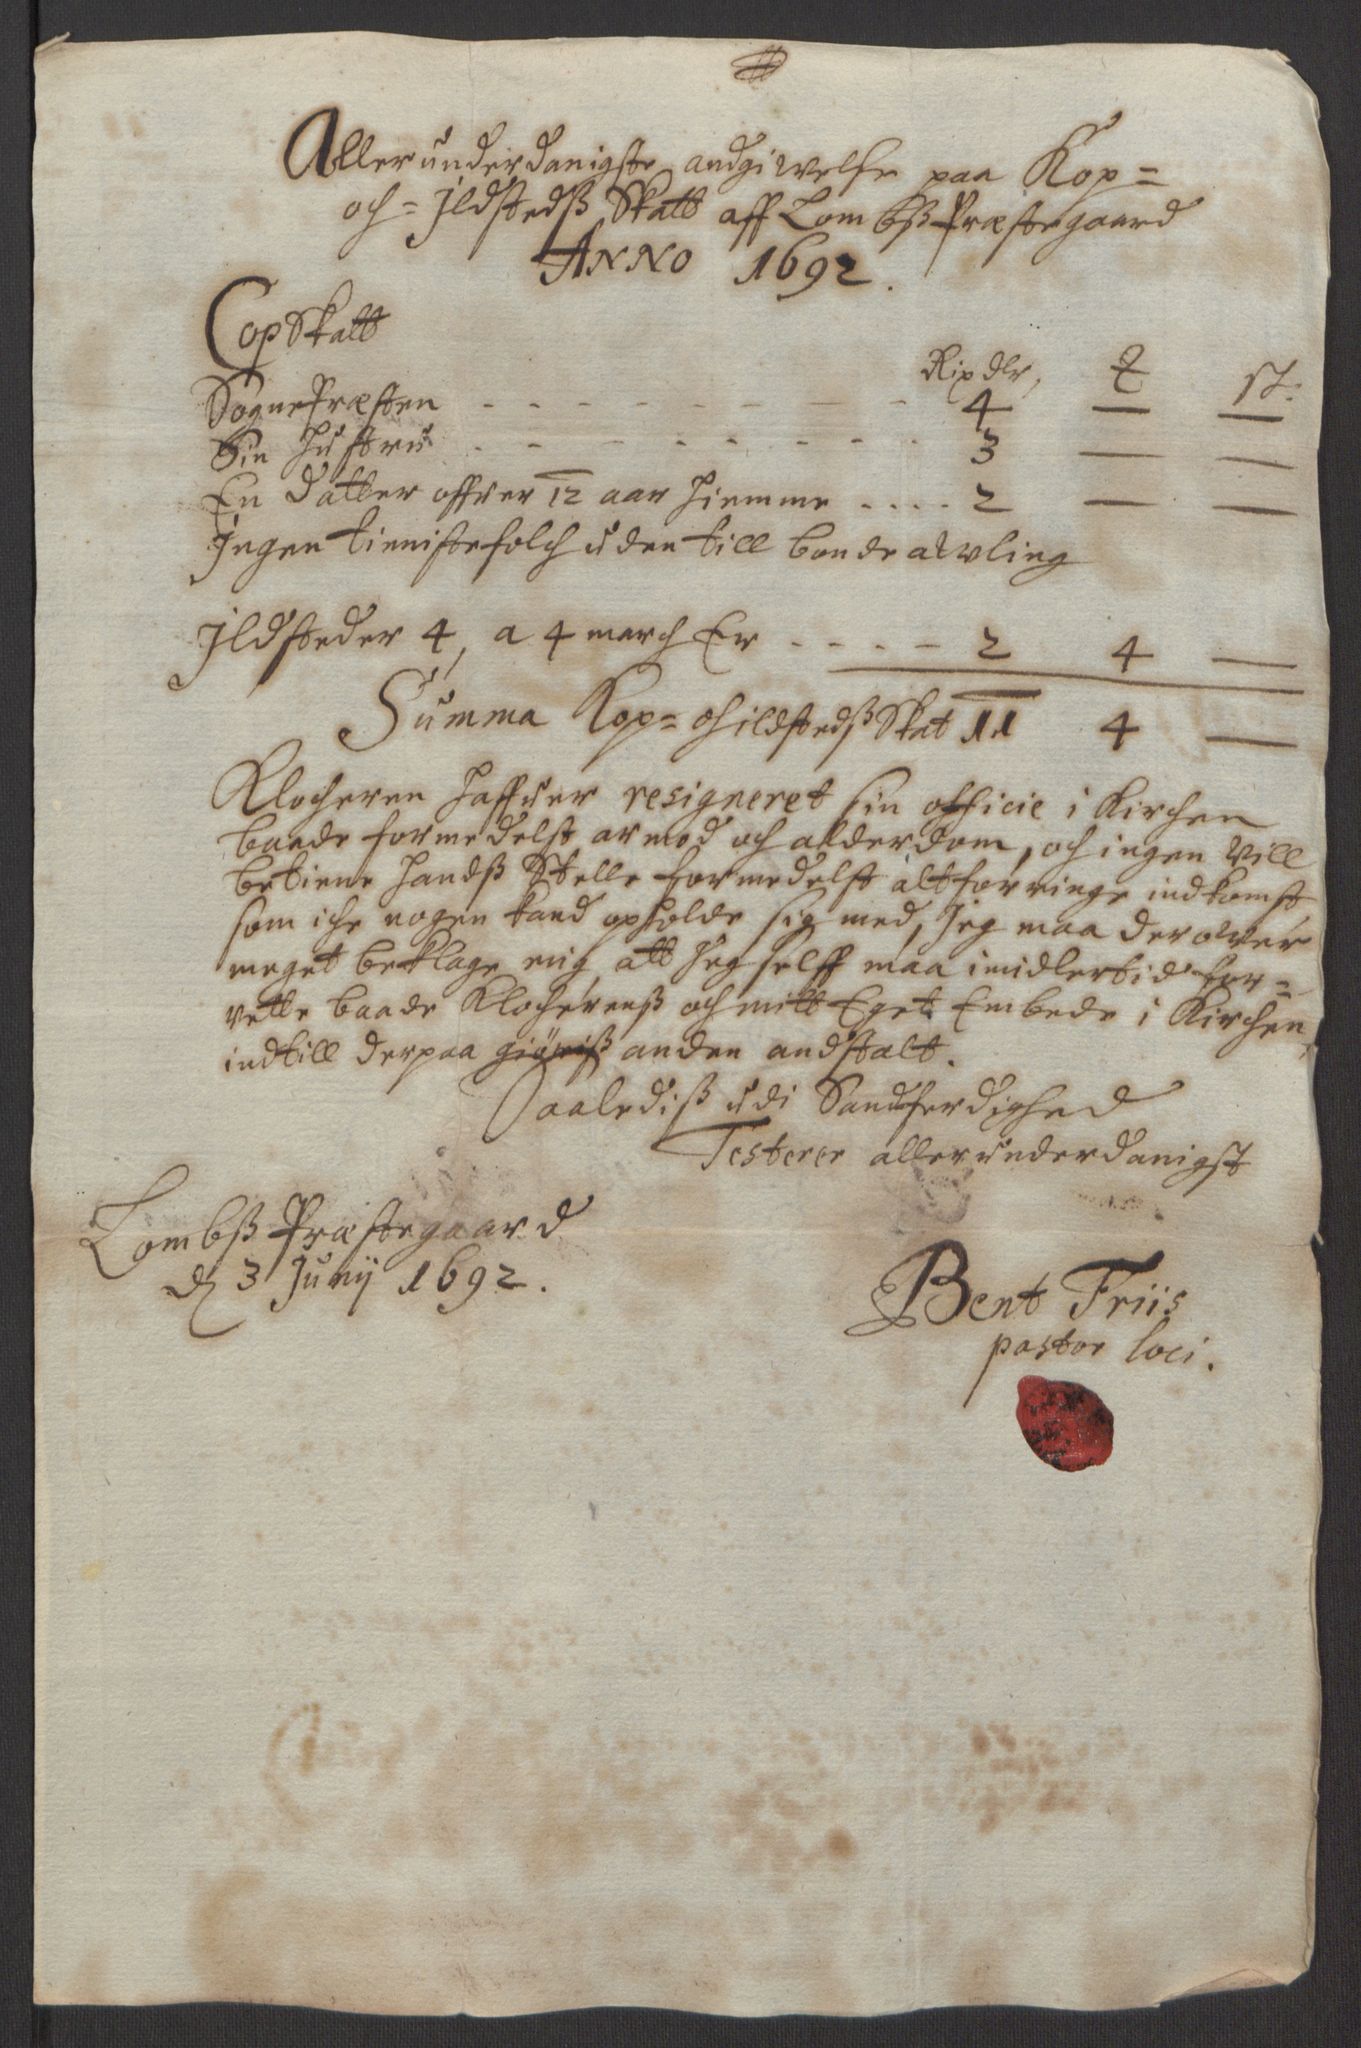 Allerunderdanigste andgivelse paa Kop=
och=Jldstedß Skatt aff Lombß Præstegaard
ANNO 1692.
CopSkatt
Rixdlr,
SognePræsten - - - - - - - - 4 — —
Sin Hustru - - - - - - - - 3 — —
En datter offver 12 aar hiemme . . . . 2 — —
Jngen tienistefolch uden till bonde avling
Jldsteder 4, a 4 march Er - - - - 2 4 —
Summa Kop= och ildstedß Skat 11 4 —
Klocheren haffuer resigneret sin officie i Kirchen
baade formedelst armod och alderdom, och ingen vill
betiene handß Stelle formedelst alt for ringe indkomst
som iche nogen kand opholde sig med, Jeg maa der over
meget beklage mig att Jeg selff maa imidlertid for=
rette baade Klocherenß och mitt Eget Embede i Kirchen,
indtill derpaa giöriß anden andstalt.
Saalediß udi Sandferdighed
Testerer allerunderdanigst
Lombß Præstegaard
d 3 Junij 1692.
Bent Friis
pastor loci.